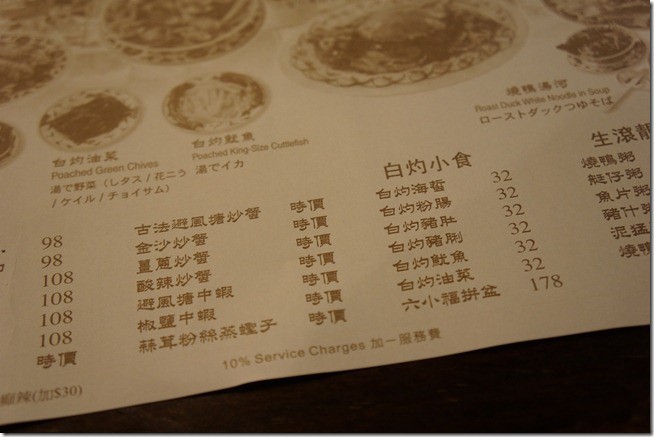 白灼油菜
Poached Green Chives
湯で野菜（レタス / 花ニラ
/ ケイル / チョイサム）
白灼魷魚
Poached King-Size Cuttlefish
湯でイカ
燒鴨湯河
Roast Duck White Noodle in Soup
ローストダックつゆそば
98
98
108
108
108
時價
古法避風塘炒蟹 時價
金沙炒蟹 時價
薑蔥炒蟹 時價
酸辣炒蟹 時價
避風塘中蝦 時價
椒鹽中蝦 時價
蒜茸粉絲蒸蟶子 時價
白灼小食
白灼海蜇 32
白灼粉腸 32
白灼豬肚 32
白灼豬脷 32
白灼魷魚 32
白灼油菜 32
六小福拼盆 178
生滾靚
燒鴨粥
艇仔粥
魚片粥
豬什粥
泥猛
燒鴨
10% Service Charges 加一服務費
辣(加$30)